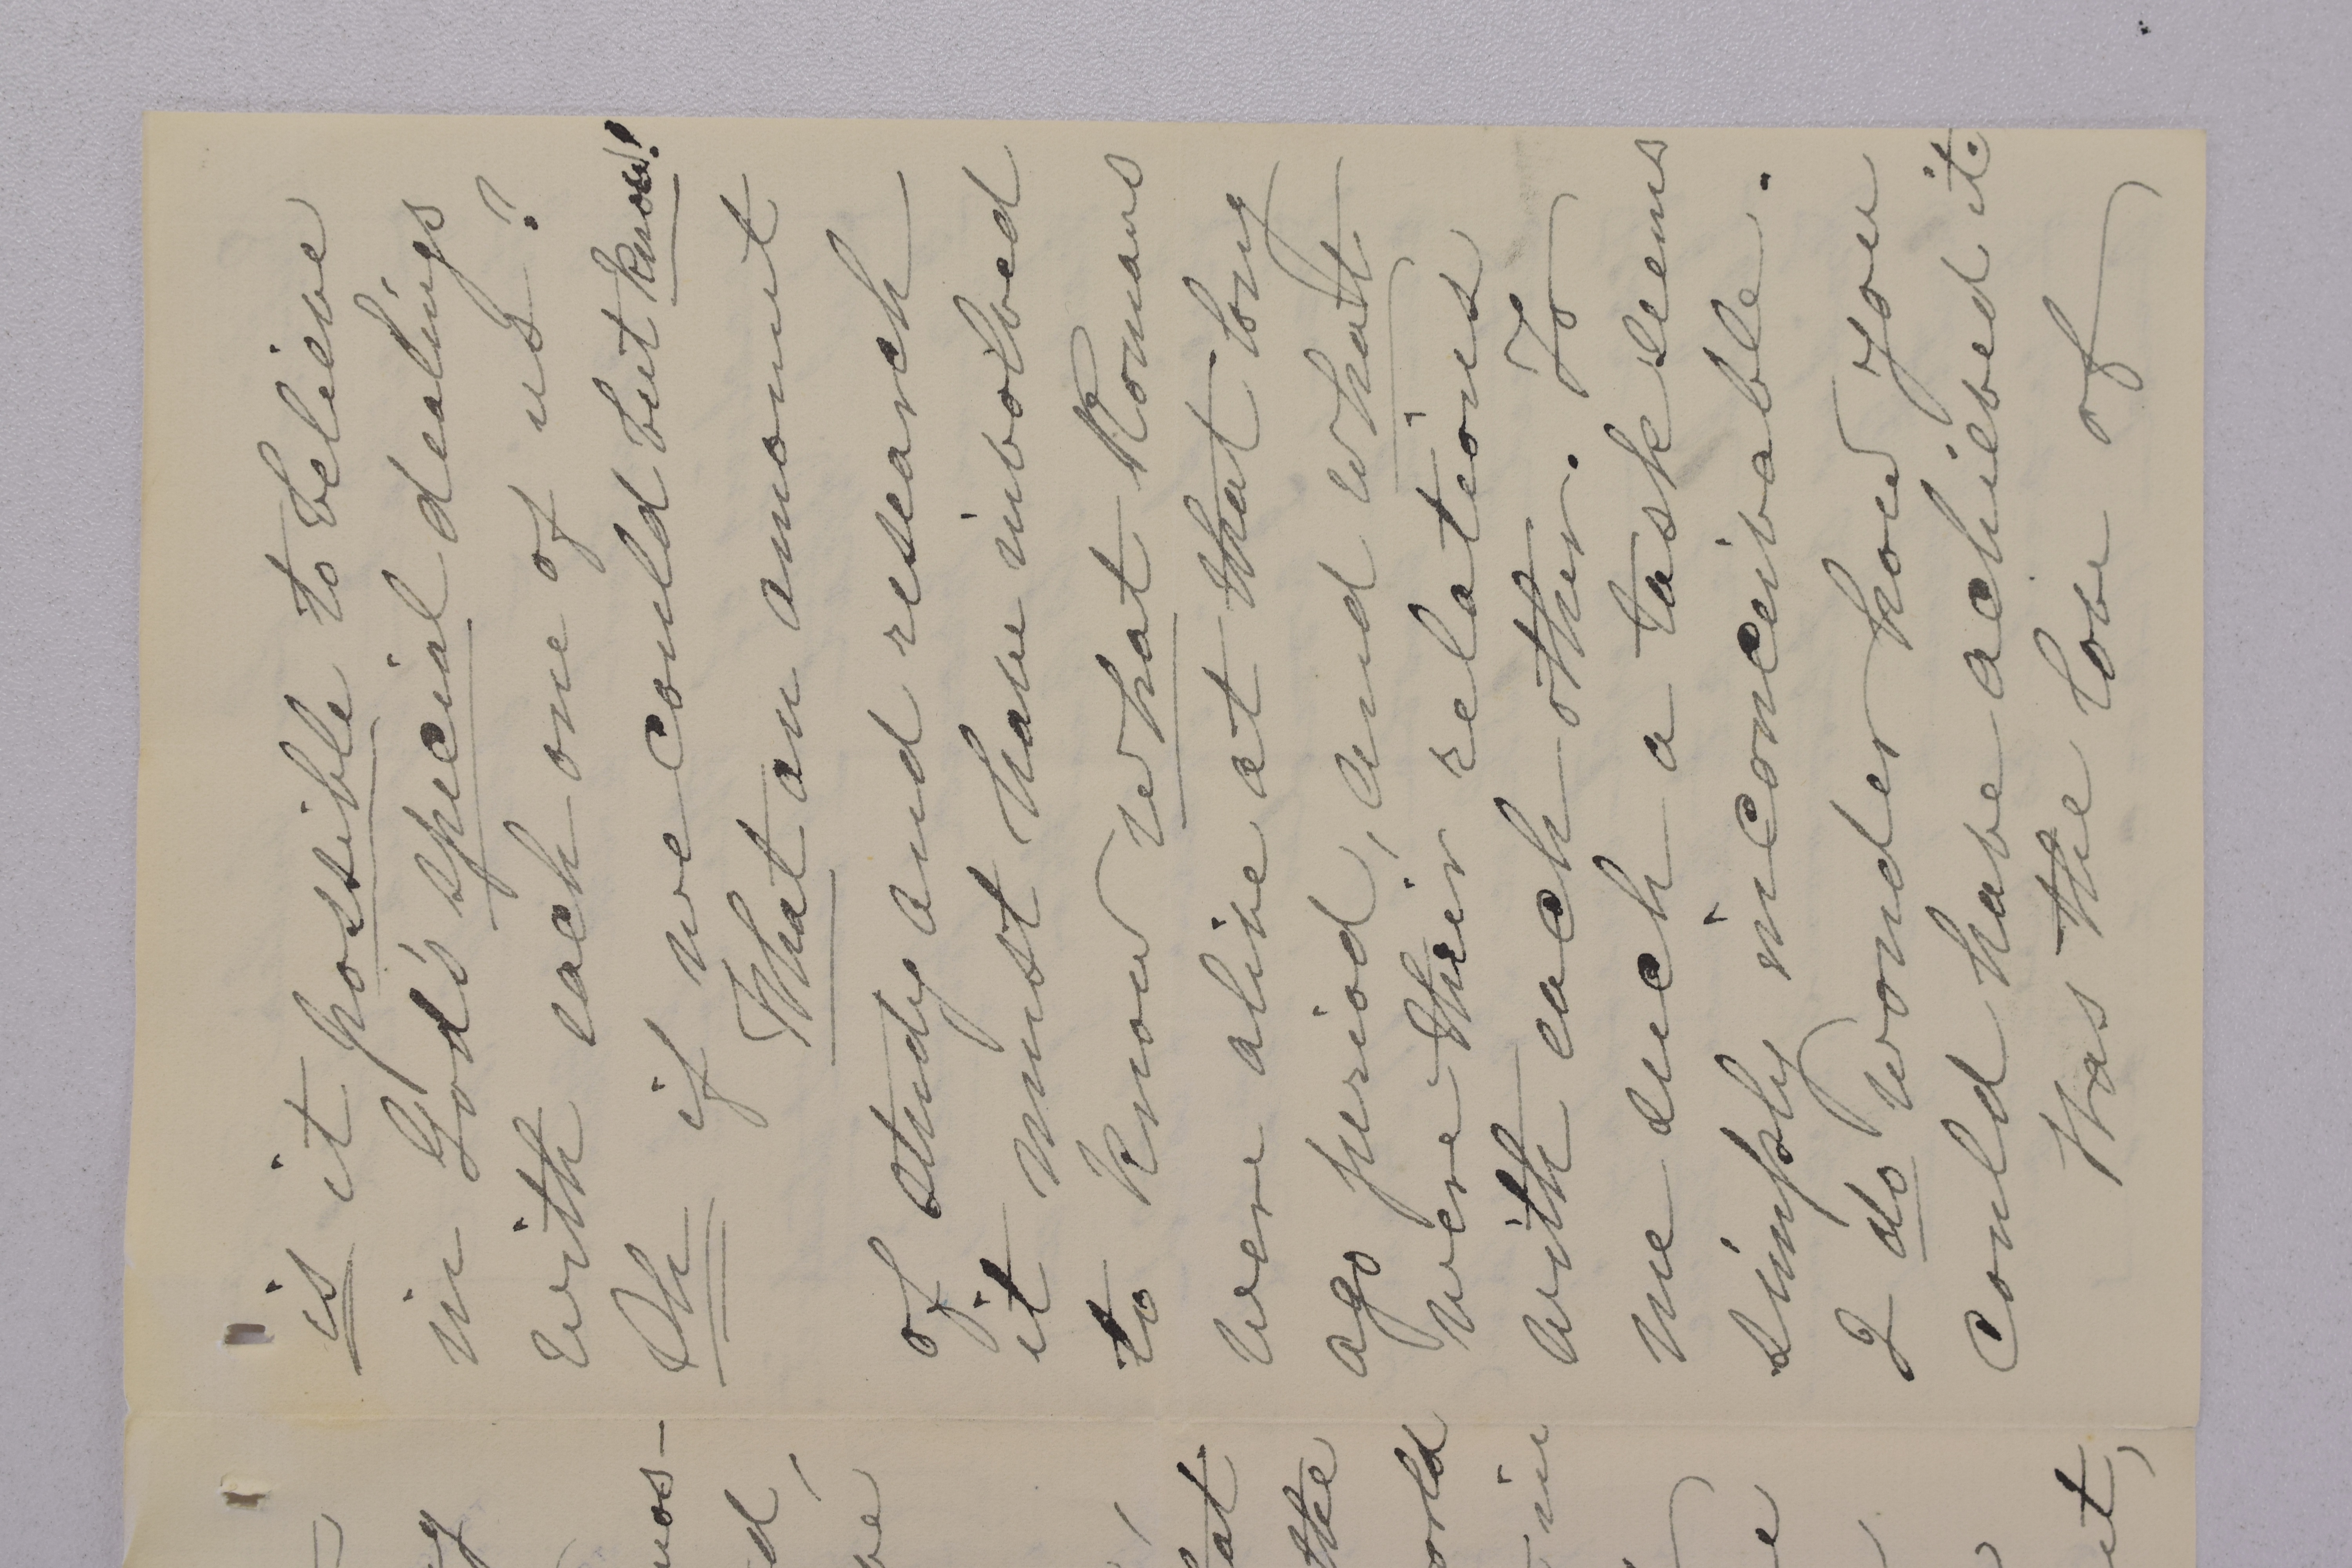 is it possible to believe
in God's special dealings
with each one of us?
Oh if we could but know!
What an amount
of study and research
it must have involved
to know what Romans
were alive at that long
ago period, and what
were their relations
with each other. To
me such a task seems
simply inconceivable.
I do wonder how you
could have achieved it.
Was the love of
the
in
it,